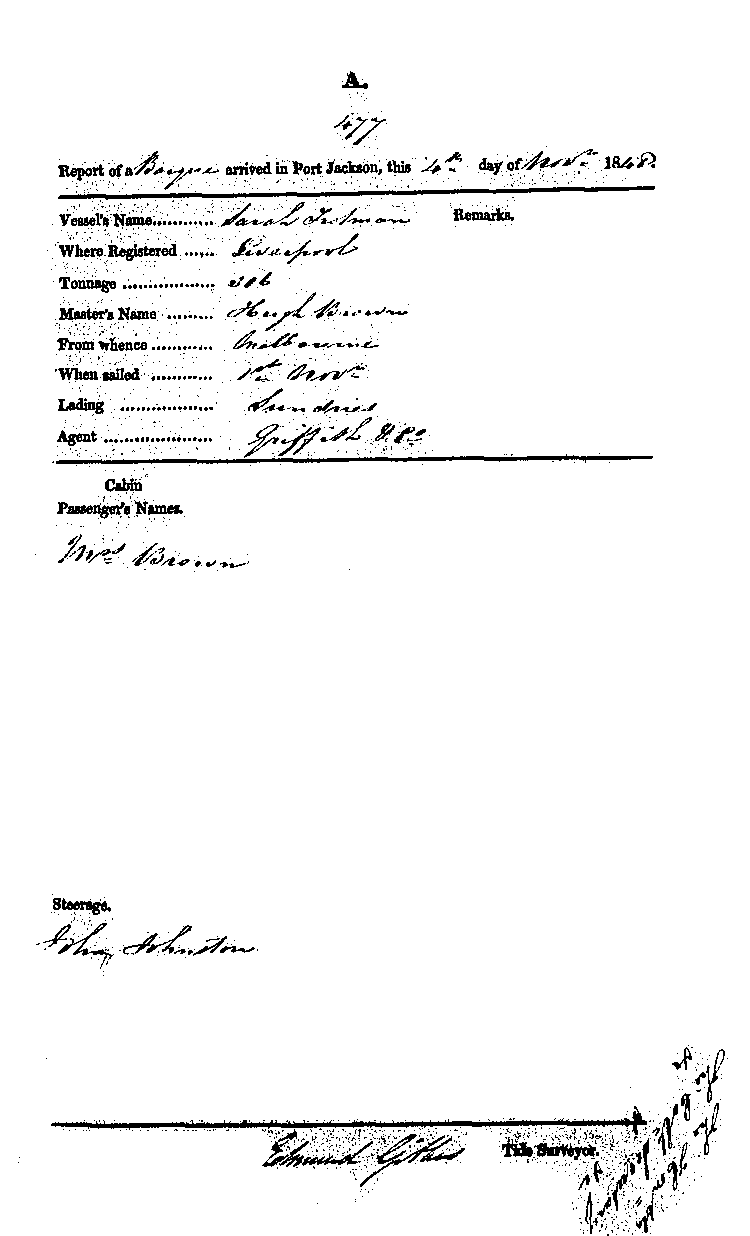 A.
477
Report of a Barque arrived in Port Jackson, this 4th day of Novr 1848.
Vessel's Name............ Sarah Remarks.
Where Registered ...... Liverpool
Tonnage .................. 306
Master's Name ......... Hugh Brown
From whence ............ Melbourne
When sailed ............ 1st Novr
Lading .................. Sundries
Agent ..................... Griffith & Co
Cabin
Passenger's Names.
Mrs Brown
Steerage.
John Johnston
Edmund Tide Surveyor.